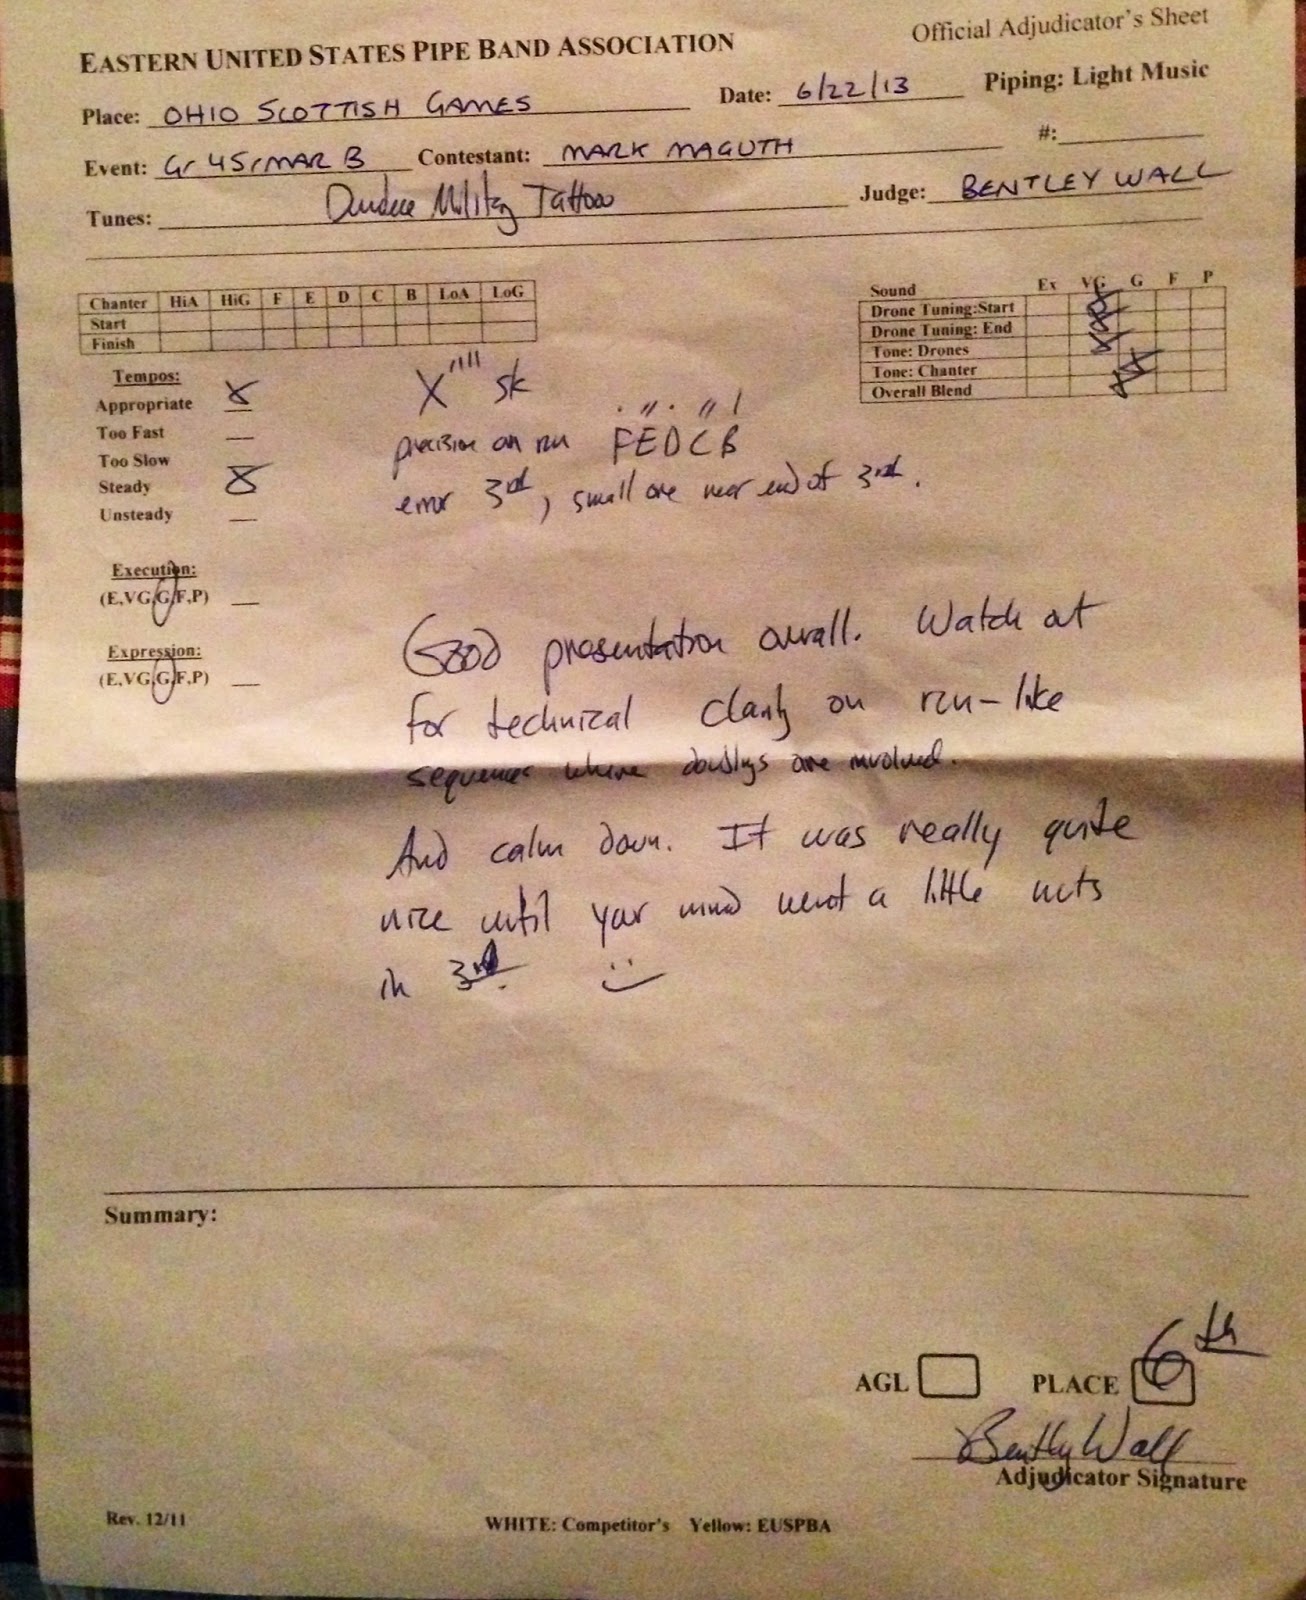 EASTERN UNITED STATES PIPE BAND ASSOCIATION
Official Adjudicator's Sheet
Place: OHIO SCOTTISH GAMES
Date: 6/22/13
Piping: Light Music
Event: Gr 4 Sr MAR B
Contestant: MARK MAGUTH
#:
Tunes: Dundee Military Tattoo
Judge: BENTLEY WALL
Chanter HiA HiG F E D C B LoA LoG
Start
Finish
Sound Ex VG G F P
Drone Tuning:Start X
Drone Tuning: End X
Tone: Drones X
Tone: Chanter X
Overall Blend X
Tempos:
Appropriate X
Too Fast
Too Slow
Steady X
Unsteady
Execution:
(E,VG,G,F,P)
Expression:
(E,VG,G,F,P)
X '''' sk
precision on run FEDCB
error 3rd, small one near end of 3rd.
Good presentation overall. Watch out
for technical clarity on run-like
sequences where doublings are involved.
And calm down. It was really quite
nice until your mind went a little nuts
in 3rd. :)
Summary:
AGL
PLACE 6th
Bentley Wall
Adjudicator Signature
Rev. 12/11
WHITE: Competitor's Yellow: EUSPBA